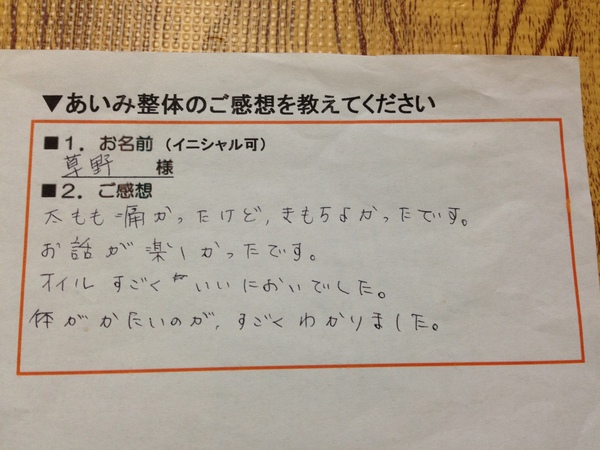 ▼あいみ整体のご感想を教えてください
■1. お名前（イニシャル可）
草野 様
■2. ご感想
太もも痛かったけど, きもちよかったです。
お話が楽しかったです。
オイル すごく いいにおいでした。
体がかたいのが, すごくわかりました。